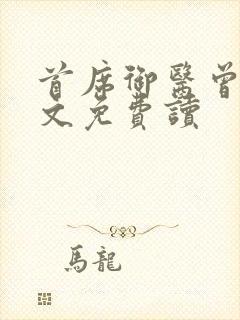 首席御醫曾
文免費讀
馬龍